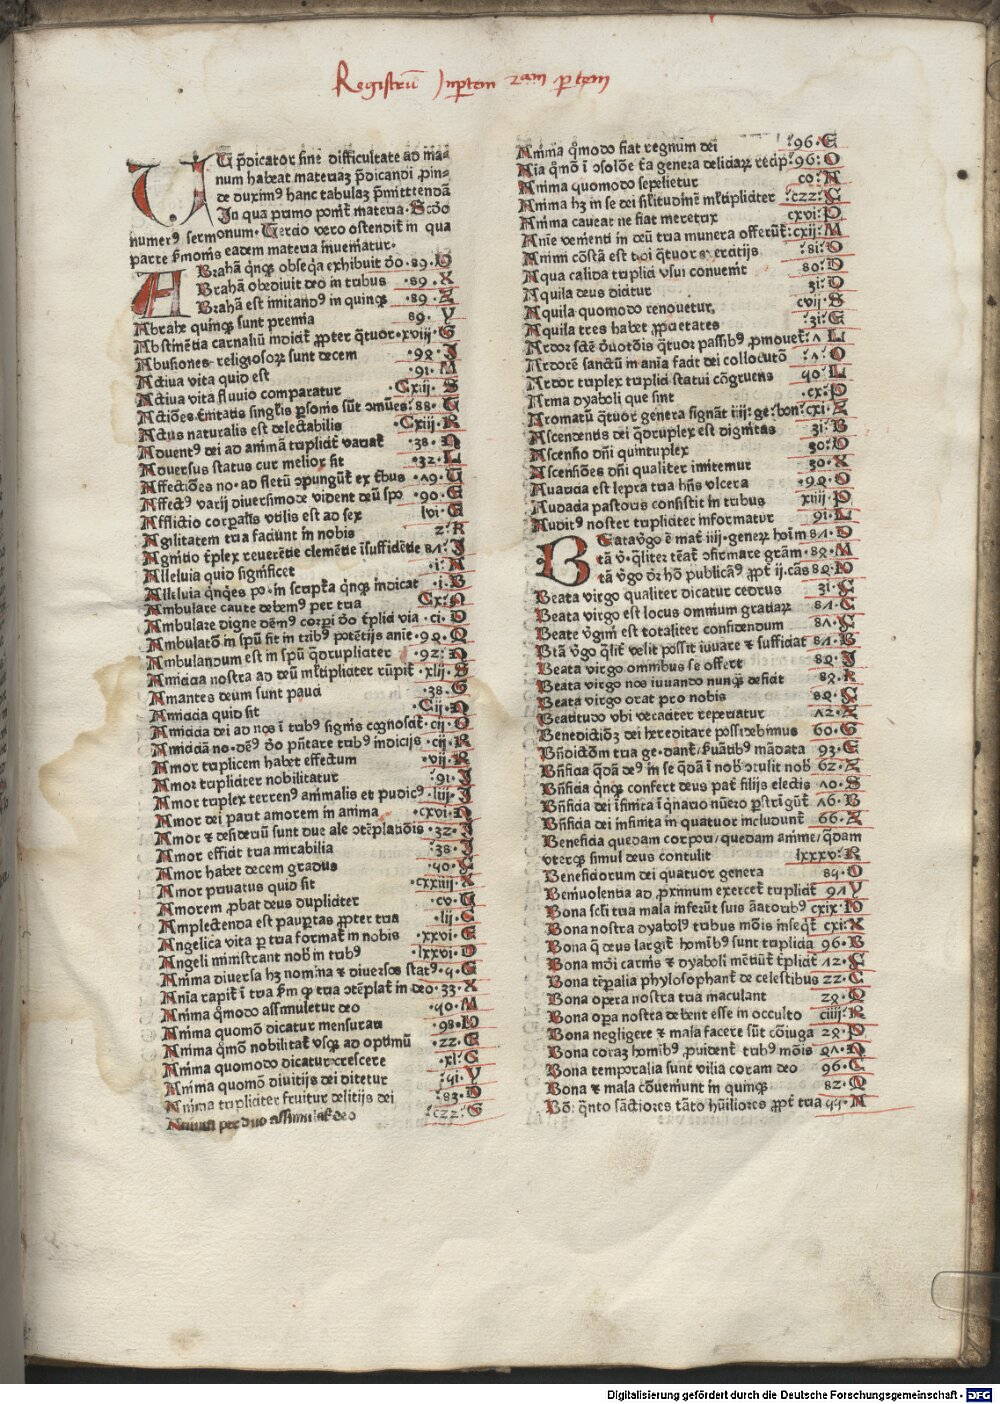 Registrū In ptem 2am ptem
UT p̄dicator sine difficultate ad ma-
num habeat materiaʒ p̄dicandi ꝓin-
de duximꝰ hanc tabulaʒ p̄mittendā
In qua primo ponit̄ materia. Scd̄o
numerꝰ sermonum. Tercio vero ostendit̄ in qua
parte ẜmonis eadem materia inuenitur.
ABrahā qnqꝫ obseqa exhibuit d̄o .89. V
Brahā obediuit deo in tribus .89. X
Brahā est imitandꝰ in quinqꝫ .89. Z
Abrahe quinqꝫ sunt premia 89. Y
Abstinētia carnaliū indicit̄ ꝓpter qͣtuor .xviij. G
Abusiones religiosoꝝ sunt decem .92. I
Actiua vita quid est .91. M
Actiua vita fluuio comparatur .Cxiij. S
Actiōes t̄initatis singl̄is ꝑsonis sūt ɔmūes .88. G
Actus naturalis est delectabilis .Cxiij. R
Aduentꝰ dei ad animā triplicit̄ variat̄ .38. N
Aduersus status cur melior sit .32. L
Affectiōes no. ad fletū ɔpungūt̄ ex t̄bus .ʌ9. U
Affectꝰ varij diuersimode vident̄ deū sp̄o .90. E
Afflictio corꝑalis vtilis est ad sex lvi. E
Agilitatem tria faciunt in nobis 2. R
Agnitio t̄plex reuerētie clemētie ⁊sufficiētie 8ʌ. I
Alleluia quid significet .i. A
Alleluia qnqes po. in sc̄riptͣ qnqꝫ indicat .i. B
Ambulare caute debemꝰ per tria Cx. N
Ambulare digne dēmꝰ corpi d̄o t̄plici via .ci. D
Ambulatō in sp̄u fit in tribꝰ potētijs anie .92. Q
Ambulandum est in sp̄u qͣdrupliciter .92. N
Amicicia nostra ad deū ml̄tipliciter rūpit̄ .xlij. S
Amantes deum sunt pauci .38. G
Amicicia quid sit .Cij. N
Amicicia dei ad nos ī tribꝰ signis cognoscit̄ .cij. O
Amiciciā no. dēꝰ d̄o pn̄tare tribꝰ indicijs .cij. R
Amor triplicem habet effectum .vij. R
Amor tripliciter nobilitatur .91. I
Amor triplex terrenꝰ animalis et pudicꝰ .liij. I
Amor dei parit amorem in anima .cxvi. N
Amor ⁊ desideriū sunt due ale ɔtēplatiōis .32. I
Amor efficit tria mirabilia .38. I
Amor habet decem gradus .40. C
Amor priuatus quid sit .cxxiiij. X
Amorem ꝓbat deus dupliciter .cv. U
Amplectenda est paupertas ꝓpter tria .lij. C
Angelica vita ꝑ tria format̄ in nobis .xxvi. E
Angeli ministrant nob̄ in tribꝰ .lxxvi. D
Anima diuersa hꝫ nomina ⁊ diuersos statꝰ .4. G
Ania rapit̄ ī tria ẜm qꝫ tria ɔtēplat̄ in deo .33. X
Anima qͦmodo assimuletur deo .40. M
Anima quomō dicatur mensurari .98. H
Anima qͦmō nobilitat̄ vsqꝫ ad optimū .22. E
Anima quomodo dicatur crescere .xl. C
Anima quomō diuitijs dei ditetur .41. Y
Anima tripliciter fruitur delitijs dei .83. D
Anima per duo assimulat̄ deo .c22. G
Anima qͦmodo fiat regnum dei .96. E
Aia qͦmō ī ɔsolōe t̄ia genera deliciaꝝ recip .96. O
Anima quomodo sepelietur co. A
Anima hꝫ in se dei sil̄itudinē ml̄tipliciter .c22. C
Anima caueat ne fiat meretrix cxvi. P
Anie venienti in deū tria munera offerūt̄ .cxij. M
Animi cōstā est tqi qͣtuor exercitijs .8i. D
Aqua calida triplici vsui conuenit̄ 80. D
Aquila deus dicitur 3i. D
Aquila quomodo renouetur, cvij. S
Aquila tres habet ꝓprietates .3i. E
Ardor scē deuotōis qͣtuor passibꝰ ꝓmouet̄ .ʌ. L
Ardorē sanctū in ania facit dei collocutō .ʌ. O
Ardor triplex triplici statui cōgruens 40. L
Arma dyaboli que sint .cx. P
Aromatū qͣtuor genera signāt iiij. ge. bon. cxi. Z
Ascendentis dei qͣdruplex est dignitas 3i. B
Ascensio dn̄i quintuplex 30. D
Ascensiōes dn̄i qualiter imitemur 30. X
Auaricia est lepra tria hn̄s vlcera .92. O
Audacia pastoris consistit in tribus xiiij. P
Auditꝰ noster tripliciter informatur 9i. L
BEata v̄go ē mat̄ iiij. generꝝ hoīm 8ʌ. D
tā v̄. qͣliter tēat̄ ɔfirmare grām .82. M
tā v̄go dr̄ hō publicāꝰ ꝓpt̄ ij. cās 82. N
Beata virgo qualiter dicatur cedrus 3i. C
Beata virgo est locus omnium gratiaꝝ 8ʌ. C
Beate v̄gini est totaliter confidendum 8ʌ. C
Btā v̄go qͣlit̄ velit possit iuuare ⁊ sufficiat 8ʌ. B
Beata virgo omnibus se offert 82. I
Beata virgo nos iuuando nunqꝫ deficit 82. R
Beata virgo orat pro nobis 82. C
Beatitudo vbi veraciter reperiatur ʌ2. Z
Benedictiōꝫ dei hereditare possidebimus 60. G
Bn̄dictōm tria ge. dant̄. ẜuātibꝰ mādata 93. E
Bn̄ficia qͣdā deꝰ in se qͣdā ī nob̄ ɔtulit nob̄ 62. Z
Bn̄ficia qnqꝫ confert deus pat̄ filijs electis ʌ0. S
Bn̄ficia dei īfinita ī qͣnario nūero ꝑstrīgūt̄ ʌ6. B
Bn̄ficia dei infinita in quatuor includunt̄ 66. Z
Beneficia quedam corpori/ quedam anime/ qͣdam
vterqꝫ simul deus contulit lxxxv. R
Beneficiorum dei quatuor genera 84. O
Beniuolentia ad ꝓximum exercet̄ triplicit̄ 9ʌ Y
Bona scti tria mala inferūt suis āatoribꝰ cxix. H
Bona nostra dyabolꝰ tribus mōis inseqt̄ cxi. X
Bona q̄ deus largit̄ hominibꝰ sunt triplicia 96. B
Bona mōi carnis ⁊ dyaboli mētiūt̄ t̄plicit̄ ʌ2. C
Bona tēꝑalia phylosophant̄ de celestibus 22. C
Bona opera nostra tria maculant 22. Q
Bona oꝑa nostra debent esse in occulto ciiij. R
Bona negligere ⁊ mala facere sūt cōiuga 22. P
Bona coraꝫ homibꝰ ꝓuident̄ tribꝰ mōis 2ʌ. N
Bona temporalia sunt vilia coram deo 96. C
Bona ⁊ mala cōueniunt in quinqꝫ 82. Q
Bōi qͣnto sāctiores tāto hūiliores ꝓpt̄ tria 44. A
Digitalisierung gefördert durch die Deutsche Forschungsgemeinschaft - DFG